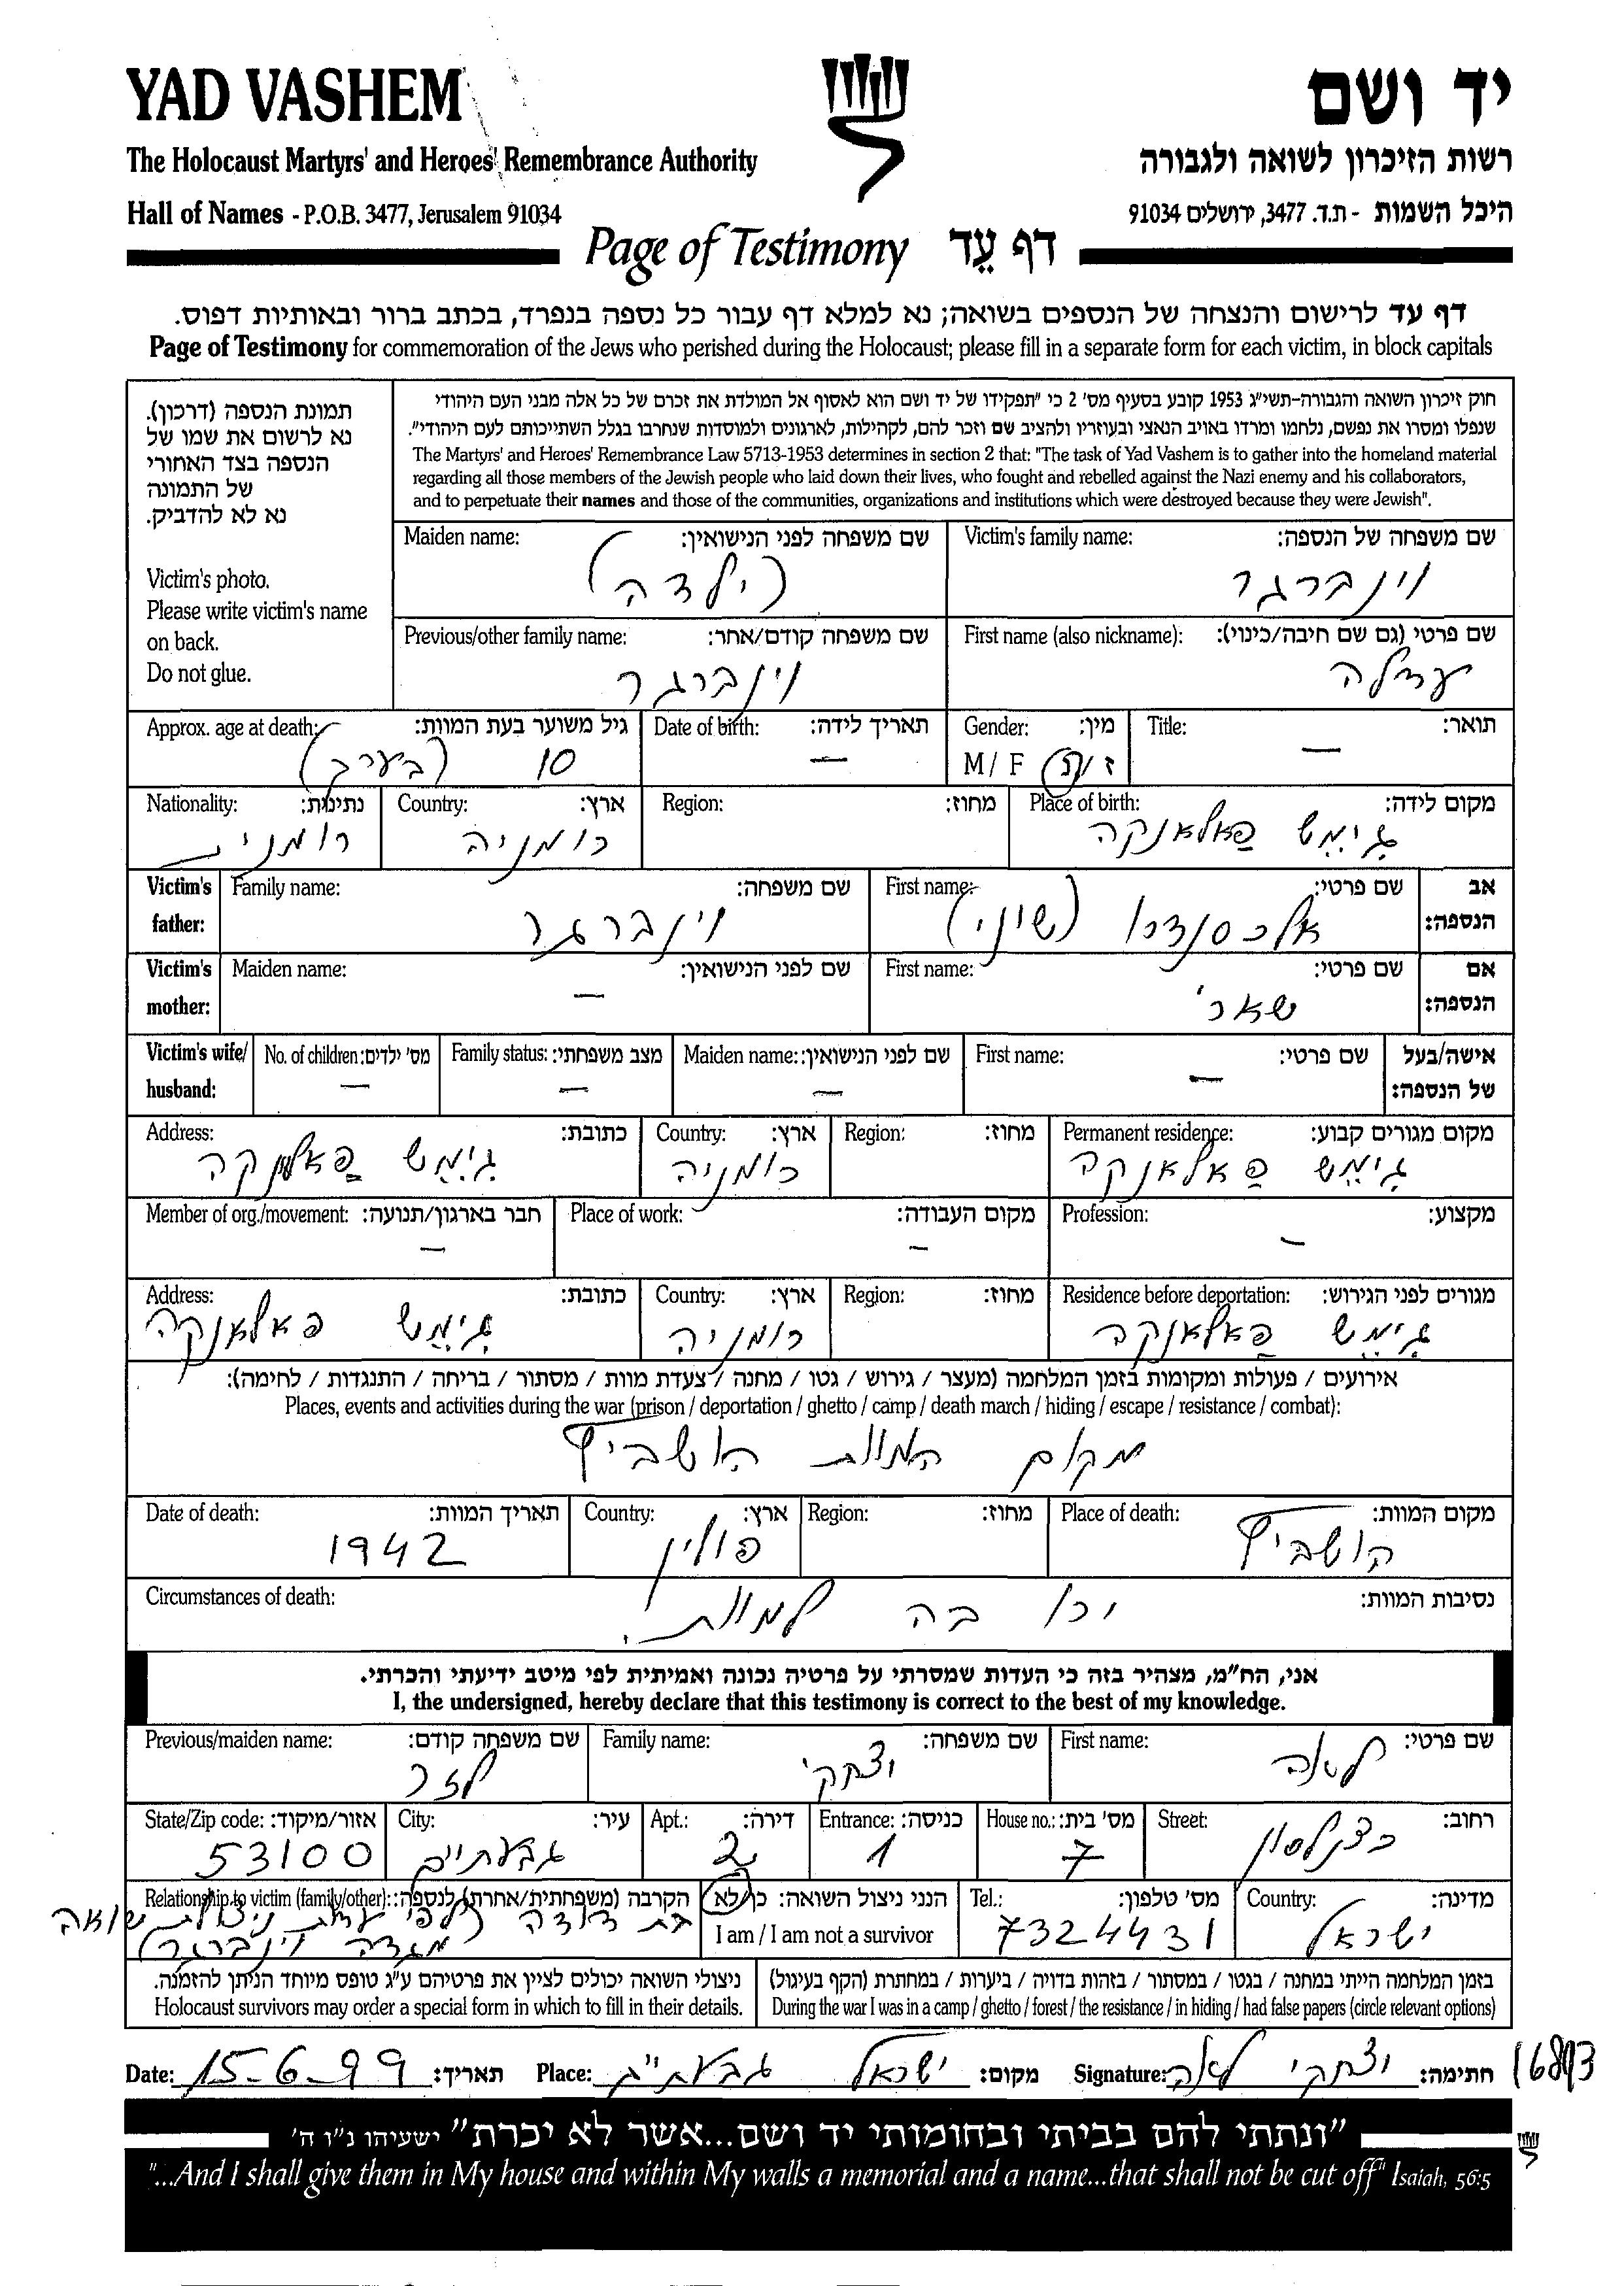 YAD VASHEM
יד ושם
The Holocaust Martyrs' and Heroes' Remembrance Authority
רשות הזיכרון לשואה ולגבורה
Hall of Names - P.O.B. 3477, Jerusalem 91034
היכל השמות - ת.ד. 3477, ירושלים 91034
Page of Testimony דף עֵד
דף עד לרישום והנצחה של הנספים בשואה; נא למלא דף עבור כל נספה בנפרד, בכתב ברור ובאותיות דפוס.
Page of Testimony for commemoration of the Jews who perished during the Holocaust; please fill in a separate form for each victim, in block capitals
תמונת הנספה (דרכון).
נא לרשום את שמו של
הנספה בצד האחורי
של התמונה
נא לא להדביק.
Victim's photo.
Please write victim's name
on back.
Do not glue.
חוק זיכרון השואה והגבורה-תשי"ג 1953 קובע בסעיף מס' 2 כי "תפקידו של יד ושם הוא לאסוף אל המולדת את זכרם של כל אלה מבני העם היהודי
שנפלו ומסרו את נפשם, נלחמו ומרדו באויב הנאצי ובעוזריו ולהציב שם וזכר להם, לקהילות, לארגונים ולמוסדות שנחרבו בגלל השתייכותם לעם היהודי".
The Martyrs' and Heroes' Remembrance Law 5713-1953 determines in section 2 that: "The task of Yad Vashem is to gather into the homeland material
regarding all those members of the Jewish people who laid down their lives, who fought and rebelled against the Nazi enemy and his collaborators,
and to perpetuate their names and those of the communities, organizations and institutions which were destroyed because they were Jewish".
Victim's family name: שם משפחה של הנספה:
וינברגר
Maiden name: שם משפחה לפני הנישואין:
(ילדה)
First name (also nickname): שם פרטי (גם שם חיבה/כינוי):
עדלה
Previous/other family name: שם משפחה קודם/אחר:
וינברגר
Title: תואר:
—
Gender: מין:
M / F ז / נ
Date of birth: תאריך לידה:
—
Approx. age at death: גיל משוער בעת המוות:
10 (בערך)
Place of birth: מקום לידה:
גִימֵש פַאלאנקה
Region: מחוז:
Country: ארץ:
רומניה
Nationality: נתינות:
רומנית
Victim's father: אב הנספה:
First name: שם פרטי:
אלכסנדרו (שוני)
Family name: שם משפחה:
וינברגר
Victim's mother: אם הנספה:
First name: שם פרטי:
שארי
Maiden name: שם לפני הנישואין:
—
Victim's wife/ husband: אישה/בעל של הנספה:
First name: שם פרטי:
—
Maiden name: שם לפני הנישואין:
—
Family status: מצב משפחתי:
—
No. of children: מס' ילדים:
—
Permanent residence: מקום מגורים קבוע:
גִימֵש פַאלאנקה
Region: מחוז:
Country: ארץ:
רומניה
Address: כתובת:
גִימֵש פַאלאנקה
Profession: מקצוע:
—
Place of work: מקום העבודה:
—
Member of org./movement: חבר בארגון/תנועה:
—
Residence before deportation: מגורים לפני הגירוש:
גִימֵש פַאלאנקה
Region: מחוז:
Country: ארץ:
רומניה
Address: כתובת:
גִימֵש פאלאנקה
אירועים / פעולות ומקומות בזמן המלחמה (מעצר / גירוש / גטו / מחנה / צעדת מוות / מסתור / בריחה / התנגדות / לחימה):
Places, events and activities during the war (prison / deportation / ghetto / camp / death march / hiding / escape / resistance / combat):
מקום המוות
Place of death: מקום המוות:
Region: מחוז:
Country: ארץ:
פולין
Date of death: תאריך המוות:
1942
Circumstances of death: נסיבות המוות:
ירו בה למוות.
אני, הח"מ, מצהיר בזה כי העדות שמסרתי על פרטיה נכונה ואמיתית לפי מיטב ידיעתי והכרתי.
I, the undersigned, hereby declare that this testimony is correct to the best of my knowledge.
First name: שם פרטי:
לאה
Family name: שם משפחה:
יצחקי
Previous/maiden name: שם משפחה קודם:
לזר
Street: רחוב:
כצנלסון
House no.: מס' בית:
7
Entrance: כניסה:
1
Apt.: דירה:
2
City: עיר:
גבעתיים
State/Zip code: אזור/מיקוד:
53100
Country: מדינה:
ישראל
Tel.: מס' טלפון:
7324431
הנני ניצול השואה: כן/לא
I am / I am not a survivor
Relationship to victim (family/other): הקרבה (משפחתית/אחרת) לנספה:
בת דודה (לפי עדות ניצולת שואה
מגדה וינברגר)
בזמן המלחמה הייתי במחנה / בגטו / במסתור / בזהות בדויה / ביערות / במחתרת (הקף בעיגול)
During the war I was in a camp / ghetto / forest / the resistance / in hiding / had false papers (circle relevant options)
ניצולי השואה יכולים לציין את פרטיהם ע"ג טופס מיוחד הניתן להזמנה.
Holocaust survivors may order a special form in which to fill in their details.
Date: 15-6-99 תאריך: Place: ישראל גבעתיים מקום: Signature: יצחקי לאה חתימה:
"ונתתי להם בביתי ובחומותי יד ושם...אשר לא יכרת" ישעיהו נ"ו ה'
"...And I shall give them in My house and within My walls a memorial and a name...that shall not be cut off" Isaiah, 56:5